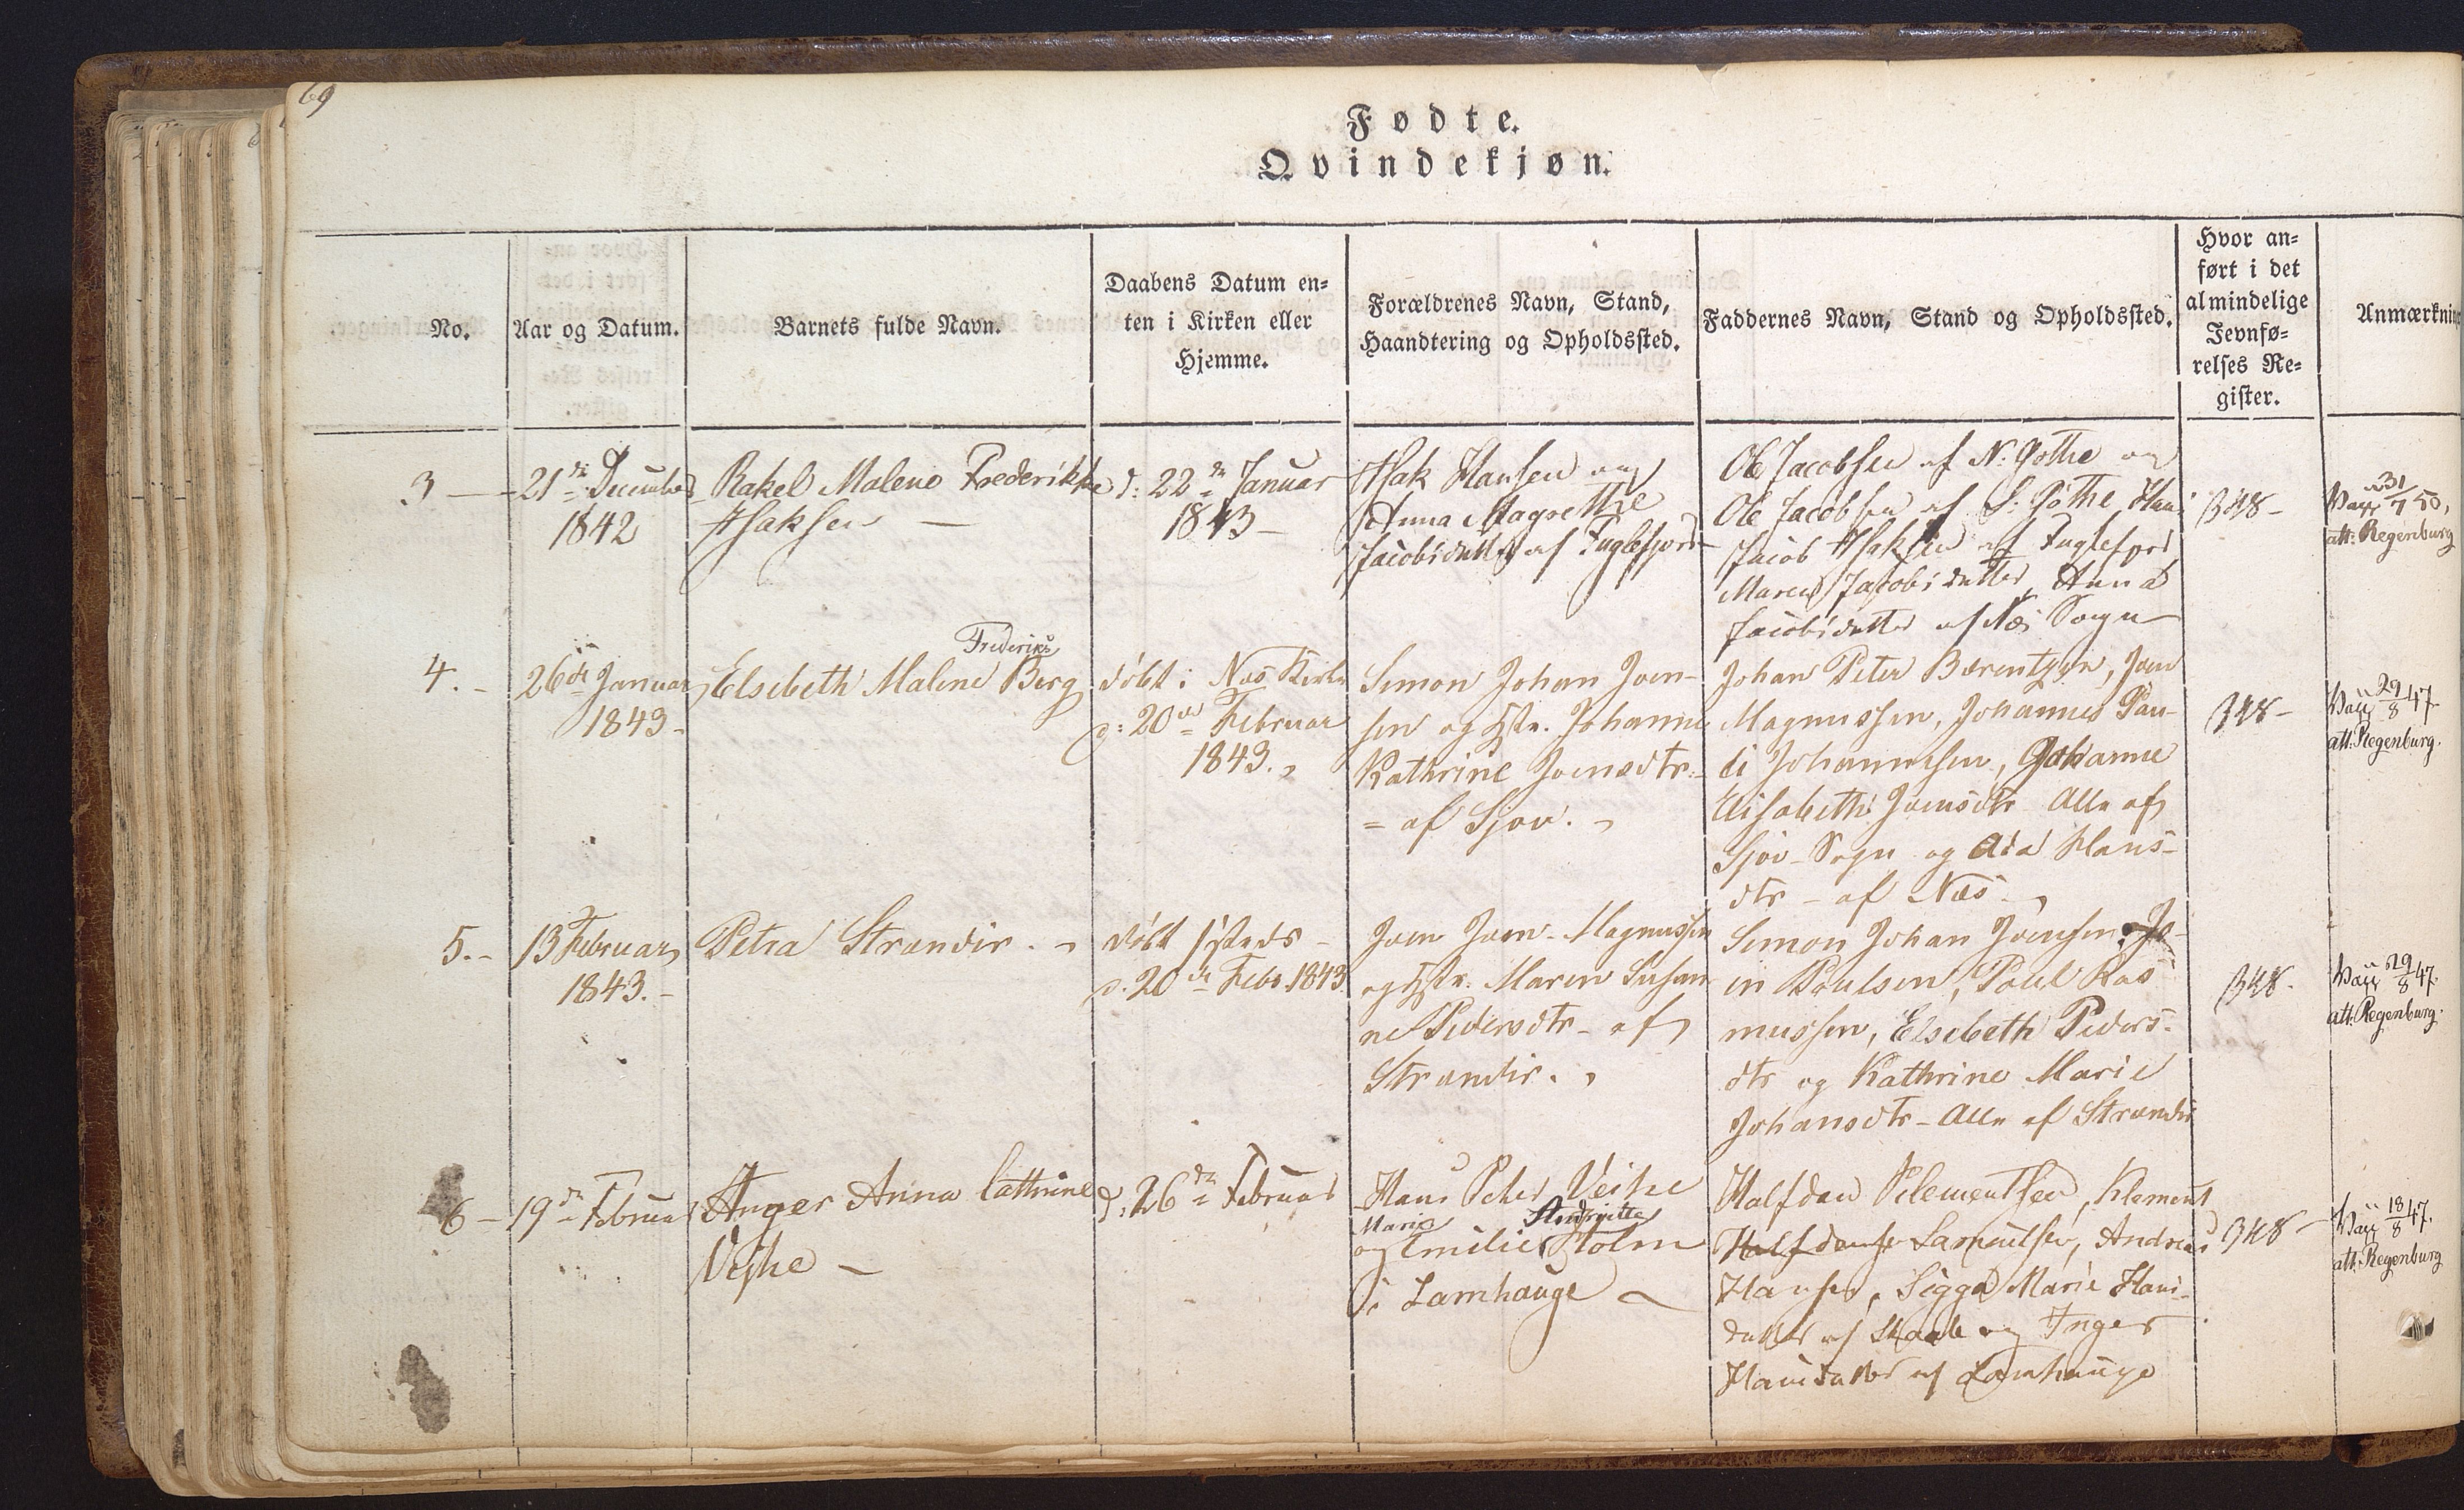 69
Fødte.
Qvindekjøn.
No.
Aar og Datum.
Barnets fulde Navn.
Daabens Datum en=
ten i Kirken eller
Hjemme.
Forældrenes Navn, Stand,
Haandtering og Opholdssted.
Faddernes Navn, Stand og Opholdssted.
Hvor an=
ført i det
almindelige
Jevnfø=
relses Re=
gister.
Anmærkning
3
21de December
1842
Rakel Malene Frederikke
Isaksen
d: 22de Januar
1843
Isak Hansen og
Anna Magrethe
Jacobsdatter af Fuglefjord
Ole Jacobsen af N. Gøthe og
Ole Jacobsen af S. Gøthe, Han
Jacob Isaksen af Fuglefjord
Maren Jacobsdatter, Anna
Jacobsdatter af Næs Sogn
348
Vacc 31/7 50,
att: Regenburg
4.
26de Januar
1843
Frederikke
Elsebeth Malene Berg
döbt i Næs Kirke
d: 20de Februar
1843.
Simon Johan Joen-
sen og Hstr. Johanne
Kathrine Joensdtr.
= af Sjov.
Johan Peter Bærentzen, Joen
Magnussen, Johannes Pau-
li Johannesen, Johanne
Elisabeth Joensdtr Alle af
Sjov Sogn og Ada Hans-
dtr - af Næs.
348
Vacc 29/8 47.
att: Regenburg.
5.
13 Februar
1843.
Petra Strænder.
döbt sstds
d. 20de Febr. 1843
Joen Joen-Magnussen
og Hstr. Maren Susan
ne Pedersdtr - af
Strænder.
Simon Johan Joensen, Jo-
en Poulsen, Poul Ras
mussen, Elsebeth Peders-
dtr og Kathrine Marie
Johansdtr - Alle af Strænder
348
Vacc 29/8 47.
att: Regenburg.
6
19de Februar
Inger Anna Cathrine
Vejhe
d: 26de Februar
Hans Peter Veihe
Marie Henriette
og Emilie Holm
i Lamhauge
Halfdan Klementsen, Klement
Halfdansen Samuelsen, Andreas
Hansen, Sigga Marie Hans-
datter af Skaale og Inger
Hansdatter af Lamhauge
348
Vacc 18/8 47.
att: Regenburg